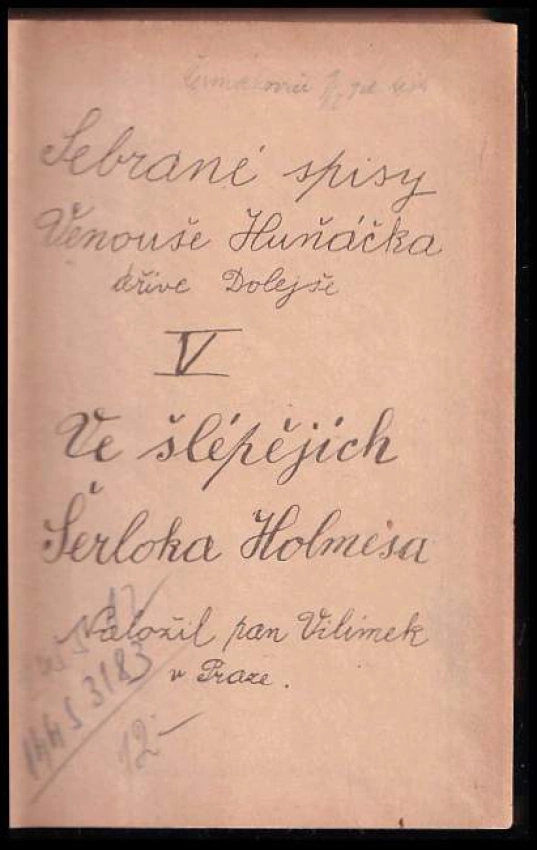 Sebrané spisy
Venouše Huňáčka
dříve Dolejše
V
Ve šlépějích
Šerloka Holmesa
Naložil pan Vilímek
v Praze.
1445 3183
12-